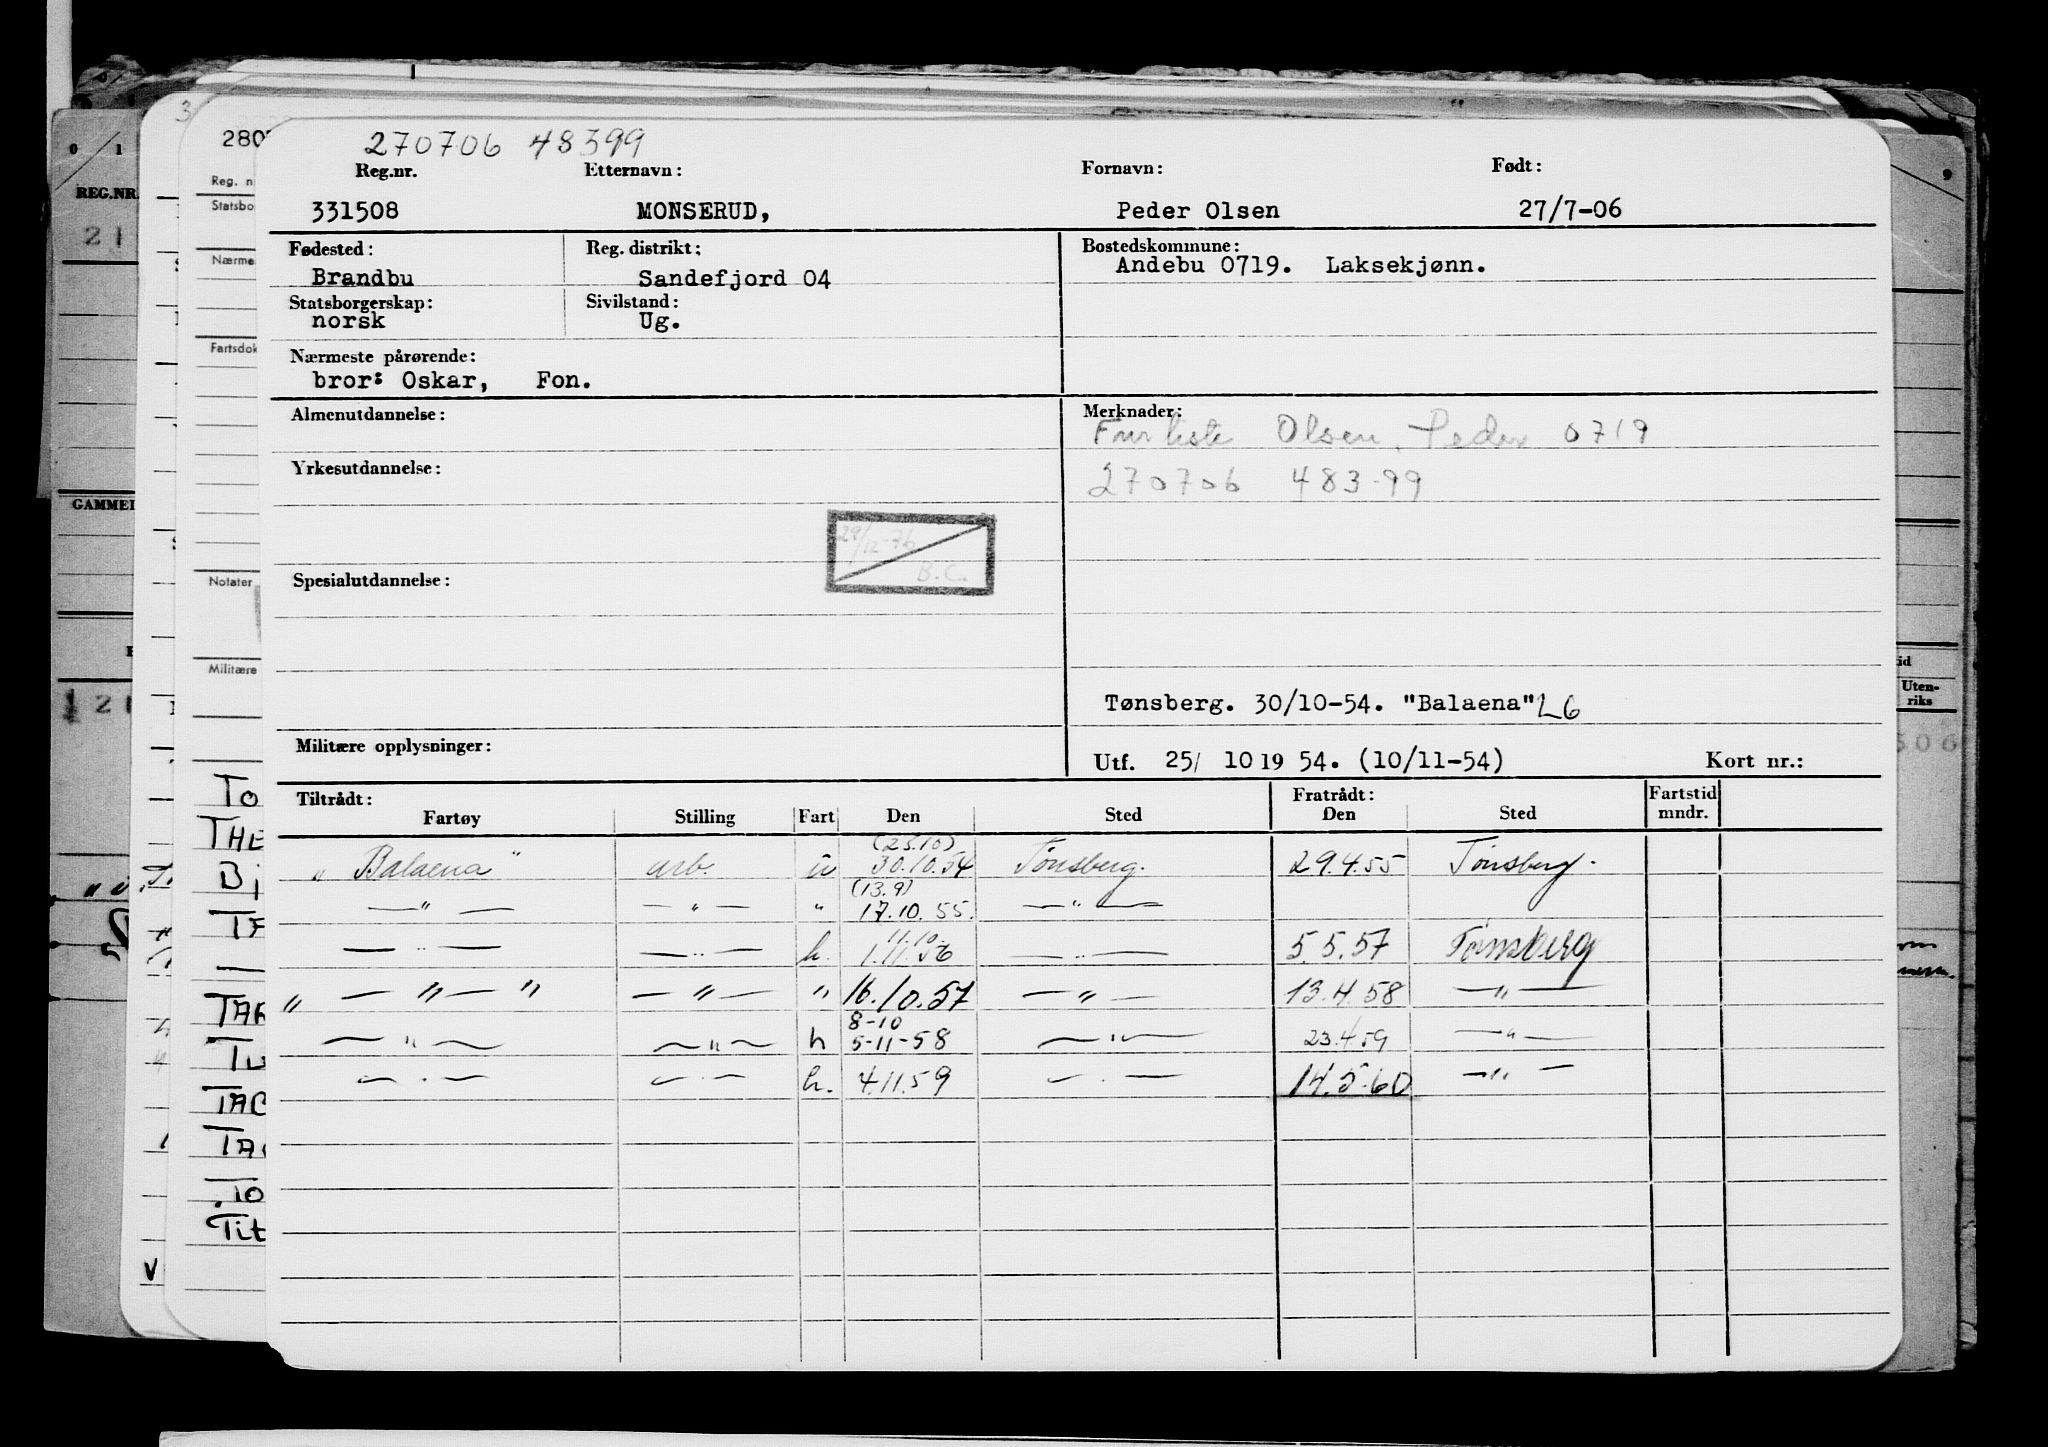 270706 48399
Reg.nr. Etternavn: Fornavn: Født:
331508 MONSERUD, Peder Olsen 27/7-06
Fødested: Reg. distrikt: Bostedskommune:
Brandbu Sandefjord 04 Andebu 0719. Laksekjønn.
Statsborgerskap: Sivilstand:
norsk Ug.
Nærmeste pårørende:
bror: Oskar, Fon.
Almenutdannelse: Merknader:
Olsen, Peder 0719
Yrkesutdannelse:
270706 483-99
29/12-76
B.C.
Spesialutdannelse:
Tønsberg. 30/10-54. "Balaena" L6
Militære opplysninger:
Utf. 25/ 10 19 54. (10/11-54) Kort nr.:
Tiltrådt: Fratrådt: Fartstid mndr.
Fartøy Stilling Fart Den Sted Den Sted
(25.10)
" Balaena" arb. u 30.10.54 Tønsberg. 29.4.55 Tønsberg.
(13.9)
— " — — " — " 17.10.55. — " —
11.10.
— " — — " — h. 1.11.56 — " — 5.5.57 Tønsberg
" — " — " — " — " 16.10.57 — " — 13.4.58 — " —
8-10
— " — — " — h 5-11-58 — " — 23.4.59 — " —
— " — — " — h. 4.11.59 — " — 14.5.60 — " —
280
Reg. n
Statsbo
Nærme
Fartsdok
Notater
Militære
To
THE
Bj
TAC
Tit
V
3
0 / 1
REG.NR.
21
GAMMEL
121
9
Uten-
riks
506